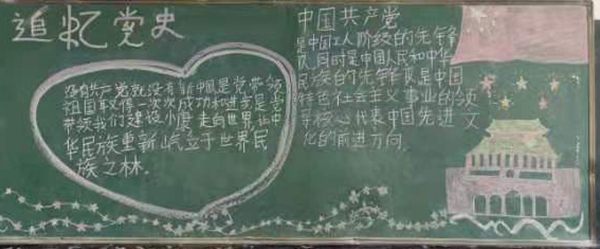 追忆党史
没有共产党就没有新中国是党带领
祖国取得一次次成功和进步是党
带领我们建设小康走向世界让中
华民族重新屹立于世界民
族之林.
中国共产党
是中国工人阶级的先锋
队同时是中国人民和中华
民族的先锋队是中国
特色社会主义事业的领
导核心代表中国先进文
化的前进方向.